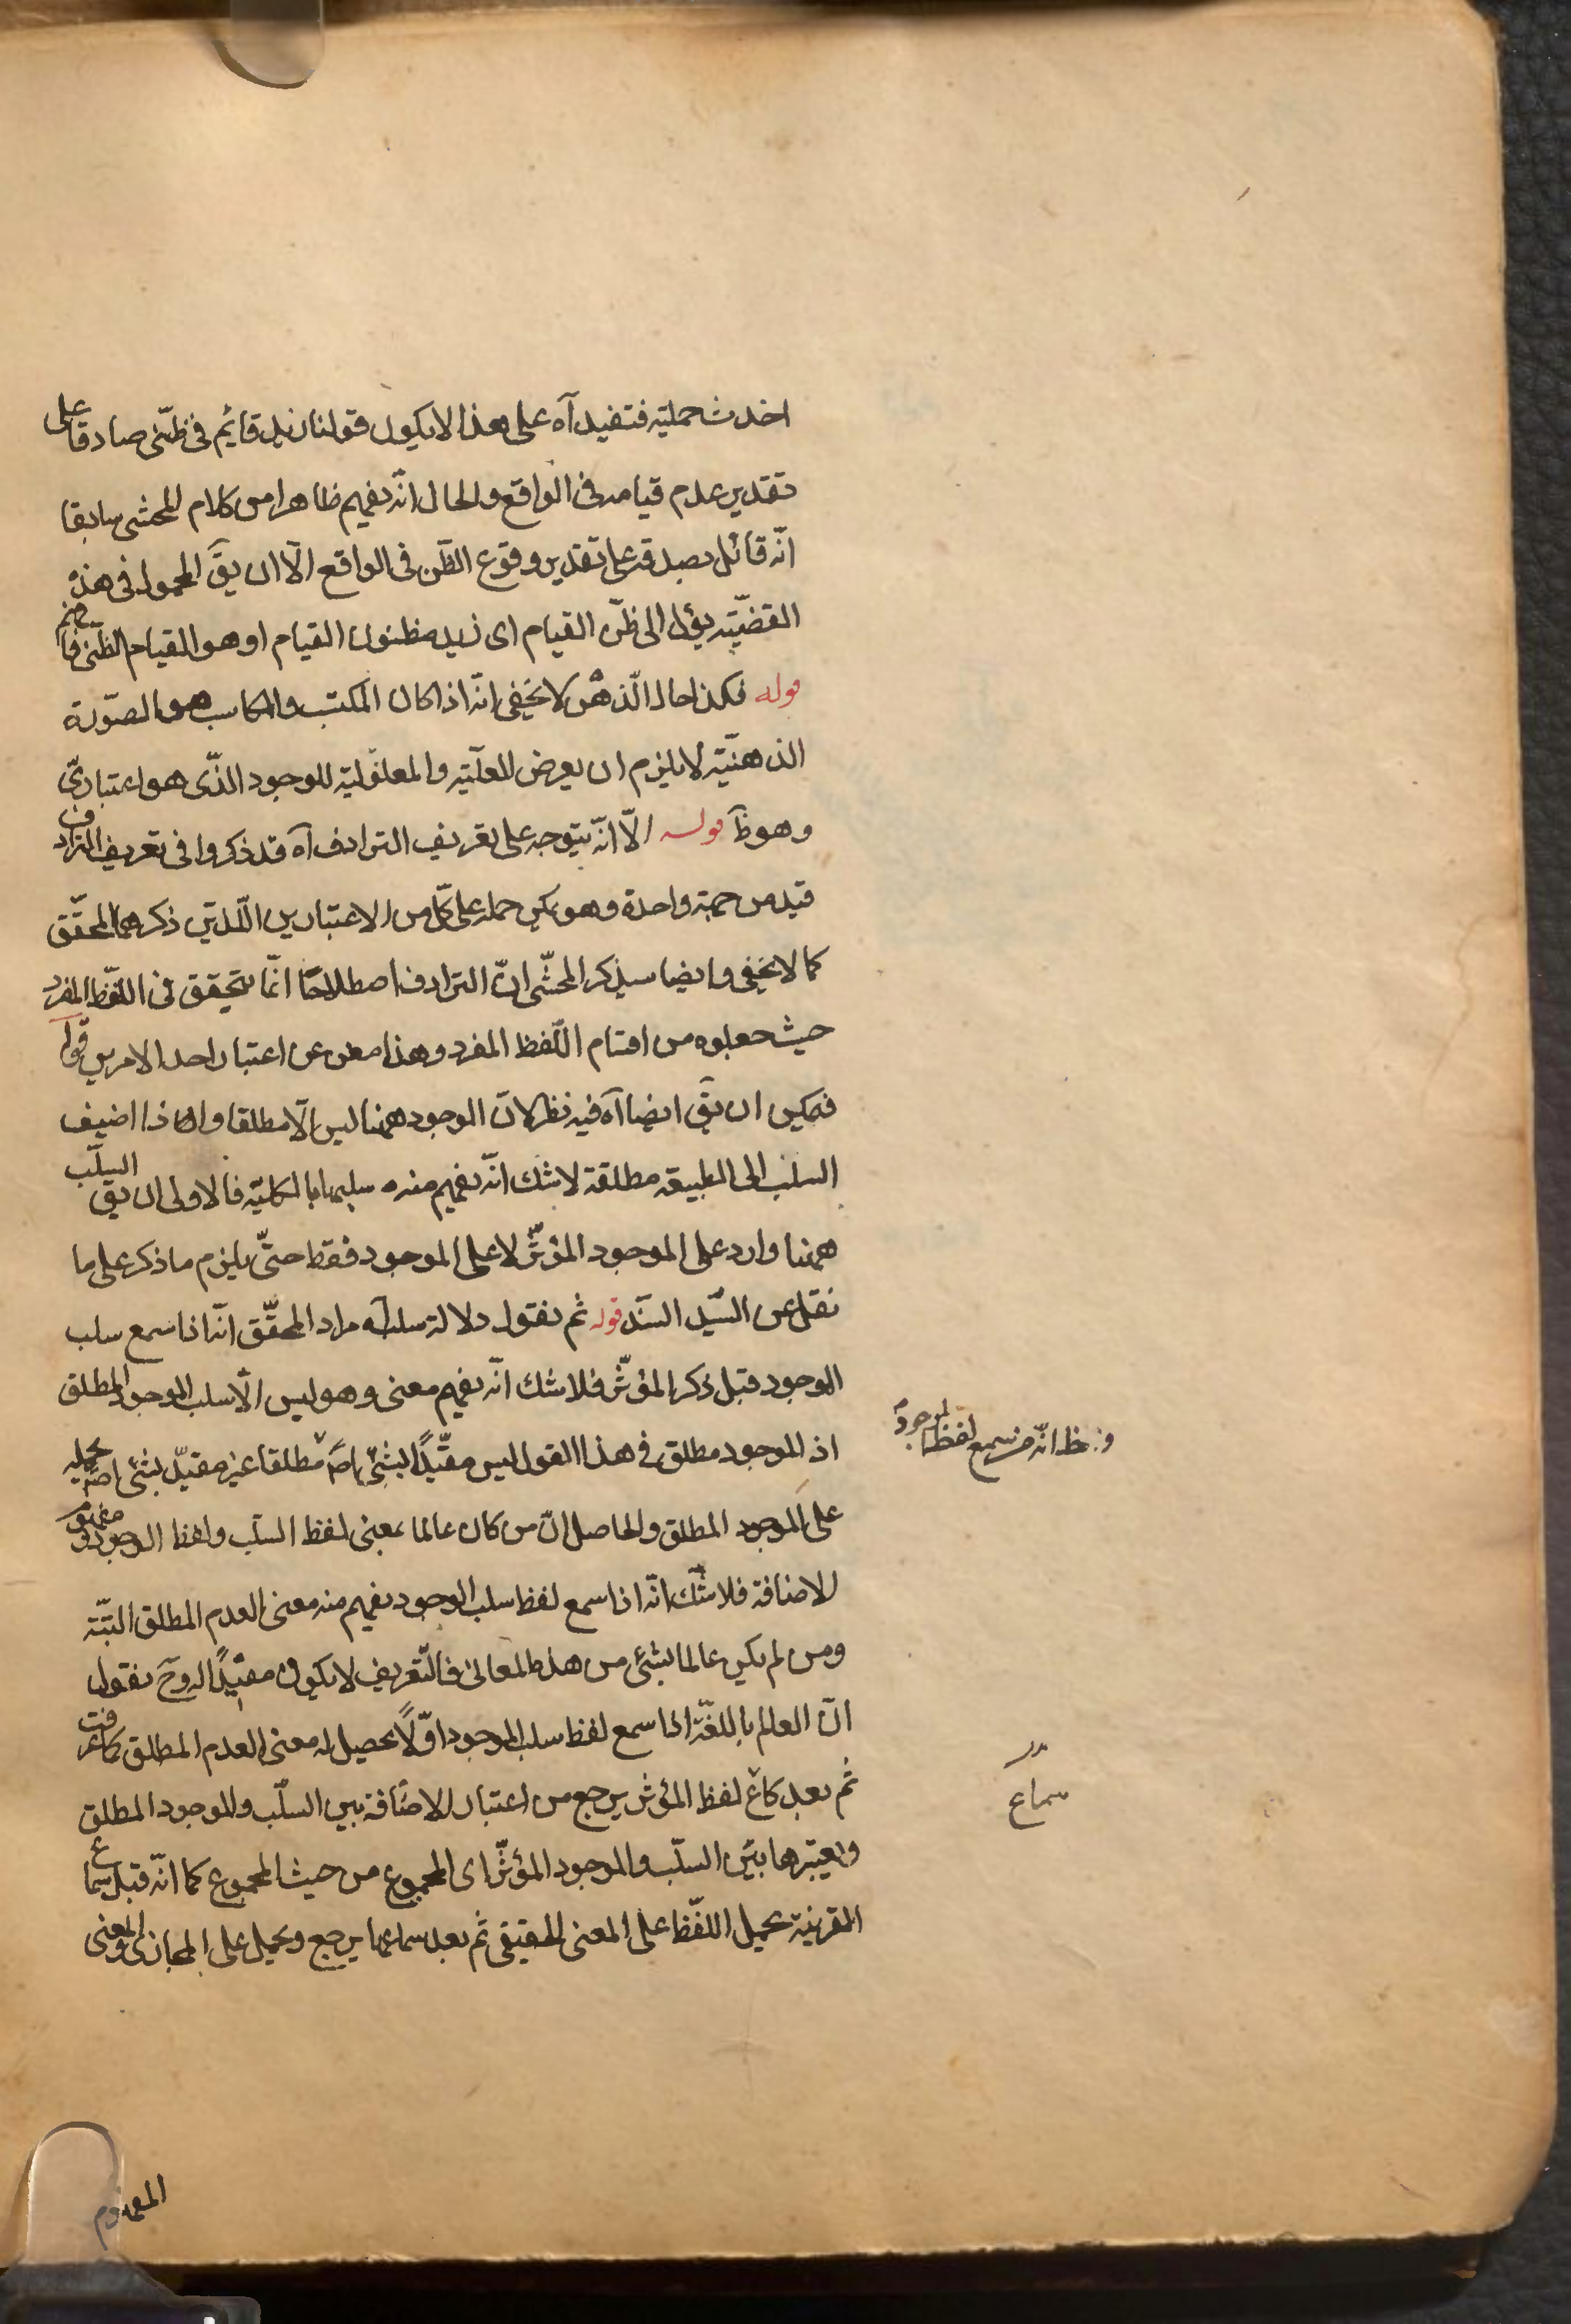 اخذت حملية فتفيد آه على هذا لا يكون قولنا زيد قائم فى ظنّى صادقا على
تقدير عدم قيامه فى الواقع والحال انّه يفهم ظاهرا من كلام المحشى سابقا
انّه قائل بصدقه على تقدير وقوع الظّن فى الواقع الّا ان يقَ المحمول فى هذه
القضيّة يؤل الى ظنّ القيام اى زيد مظنون القيام او هو القيام الظنّى فافهم
قوله فكذا حال الّذهن لا يخفى انّه اذا كان المكتسب والكاسب هو الصّورة
الذهنيّة لا يلزم ان يعرض العلّية والمعلوليّة للوجود الذّى هو اعتبارىّ
وهو ظَ قوله الّا انّه يتوجه على تعريف الترادف آه قد ذكروا فى تعريف الترادف
قيد من جهة واحدة وهو يمكن حمله على كلّ من الاعتبارين اللّذين ذكرهما المحقّق
كما لا يخفى وايضا سيذكر المحشّى انّ الترادف اصطلاحًا انّما يتحقق فى اللّفظ المفرد
حيث جعلوه من اقسام اللّفظ المفرد وهذا مغن عن اعتبار احد الامرين قوله
فيمكن ان يقَ ايضا آه فيه نظر لانّ الوجود ههنا ليس الّا مطلقا واذا اضيف
السلب الى الطبيعة مطلقة لا شك انّه يفهم منه سلبها بالكليّة فالاولى ان يقَ السلّب
ههنا وارد على الموجود المؤثّر لا على الموجود فقط حتّى يلزم ما ذكر على ما
نقل عن السّيد السّند قوله ثم نقول دلالة سلب آه مراد المحقّق انّه اذا سمع سلب
الوجود قبل ذكر المؤثّر فلا شك انّه يفهم معنى وهو ليس الّا سلب الوجود المطلق
اذ الموجود مطلق فى هذا القول ليس مقيّدًا بشئ اصلا مطلقا غير مقيّد بشئ اصلا يحمله
على الموجود المطلق والحاصل انّ من كان عالما بمعنى لفظ السلّب ولفظ الوجود ومفهوم
الاضافة فلا شّك انّه اذا سمع لفظ سلب الوجود يفهم منه معنى العدم المطلق البتّة
ومن لم يكن عالما بشئ من هذه المعانى فالتّعريف لا يكون مفيدًا له وحَ نقول
انّ العالم باللغّة اذا سمع لفظ سلب الموجود اوّلًا يحصل له معنى العدم المطلق كما عرفت
ثم بعد سماع لفظ المؤثر يرجع من اعتبار الاضافة بين السلّب والموجود المطلق
ويعتبرها بين السلّب والموجود المؤثّر اى المجموع من حيث المجموع كما انّه قبل سماع
القرينة يحمل اللفّظ على المعنى الحقيقى ثم بعد سماعها يرجع ويحمل على المجازى والمعنى
المفهوم
وظ انّه من سمع لفظ الموجود
سماع